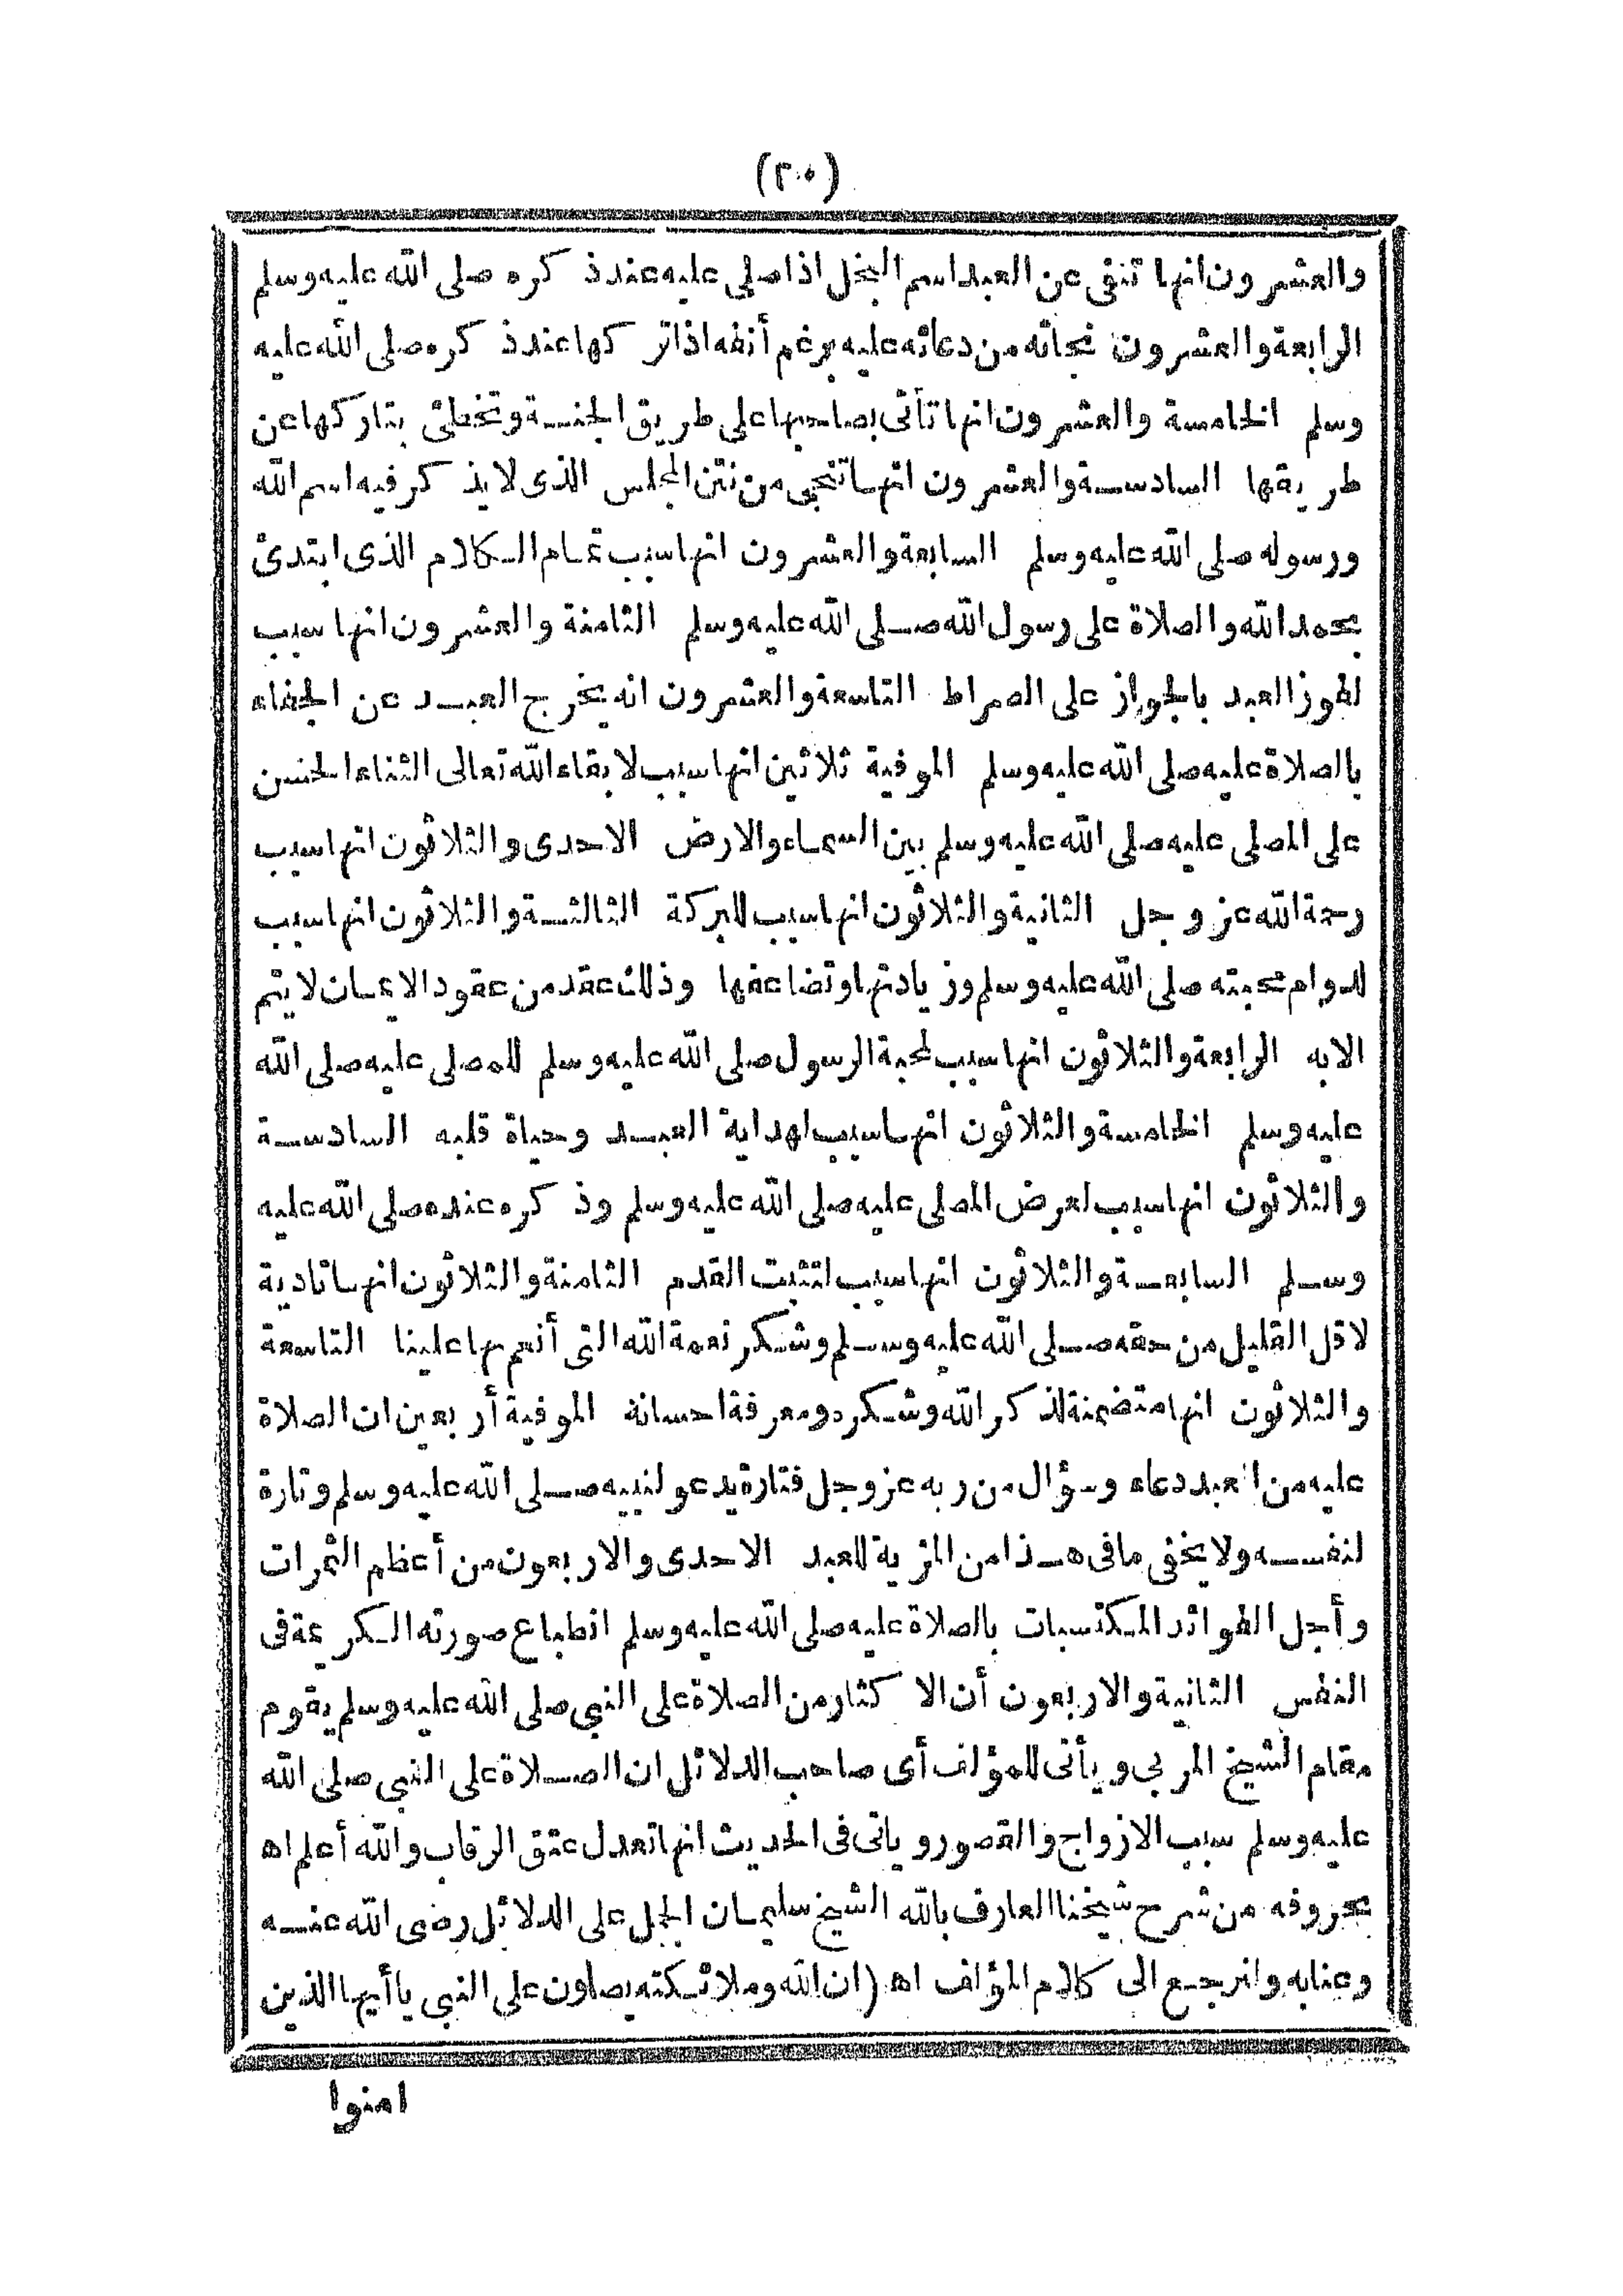 (٢٠)
والعشرون انها تنفى عن العبد اسم البخل اذا صلى عليه عند ذكره صلى الله عليه وسلم
الرابعة والعشرون نجاته من دعائه عليه برغم أنفه اذا تركها عند ذكره صلى الله عليه
وسلم الخامسة والعشرون انها تأتى بصاحبها على طريق الجنة وتخطئ بتاركها عن
طريقها السادسة والعشرون انها تنجى من نتن المجلس الذى لا يذكر فيه اسم الله
ورسوله صلى الله عليه وسلم السابعة والعشرون انها سبب تمام الكلام الذى ابتدئ
بحمد الله والصلاة على رسول الله صلى الله عليه وسلم الثامنة والعشرون انها سبب
لفوز العبد بالجواز على الصراط التاسعة والعشرون انه يخرج العبد عن الجفاء
بالصلاة عليه صلى الله عليه وسلم الموفية ثلاثين انها سبب لابقاء الله تعالى الثناء الحسن
على المصلى عليه صلى الله عليه وسلم بين السماء والارض الاحدى والثلاثون انها سبب
رحمة الله عز وجل الثانية والثلاثون انها سبب للبركة الثالثة والثلاثون انها سبب
لدوام محبته صلى الله عليه وسلم وزيادتها وتضاعفها وذلك عقد من عقود الايمان لا يتم
الا به الرابعة والثلاثون انها سبب لمحبة الرسول صلى الله عليه وسلم للمصلى عليه صلى الله
عليه وسلم الخامسة والثلاثون انها سبب لهداية العبد وحياة قلبه السادسة
والثلاثون انها سبب لعرض المصلى عليه صلى الله عليه وسلم وذكره عنده صلى الله عليه
وسلم السابعة والثلاثون انها سبب لتثبت القدم الثامنة والثلاثون انها تادية
لاقل القليل من حقه صلى الله عليه وسلم وشكر نعمة الله التى أنعم بها علينا التاسعة
والثلاثون انها متضمنة لذكر الله وشكره ومعرفة احسانه الموفية أربعين ان الصلاة
عليه من العبد دعاء وسؤال من ربه عز وجل فتارة يدعو لنبيه صلى الله عليه وسلم وتارة
لنفسه ولا يخفى ما فى هذا من المزية للعبد الاحدى والاربعون من أعظم الثمرات
وأجل الفوائد المكتسبات بالصلاة عليه صلى الله عليه وسلم انطباع صورته الكريمة فى
النفس الثانية والاربعون أن الاكثار من الصلاة على النبى صلى الله عليه وسلم يقوم
مقام الشيخ المربى ويأتى للمؤلف أى صاحب الدلائل ان الصلاة على النبى صلى الله
عليه وسلم سبب الازواج والقصور وياتى فى الحديث انها تعدل عتق الرقاب والله أعلم اه
بحروفه من شرح شيخنا العارف بالله الشيخ سليمان الجمل على الدلائل رضى الله عنه
وعنا به ولنرجع الى كلام المؤلف اه (ان الله وملائكته يصلون على النبى يا أيها الذين
امنوا